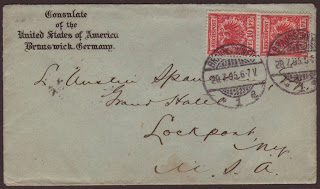 Consulate
of the
United States of America
Brunswick, Germany.
10 10
20.7.95.6-7.V.
L. Austin Spau
Grand Hotel
Lockport
N.Y.
U. S. A.